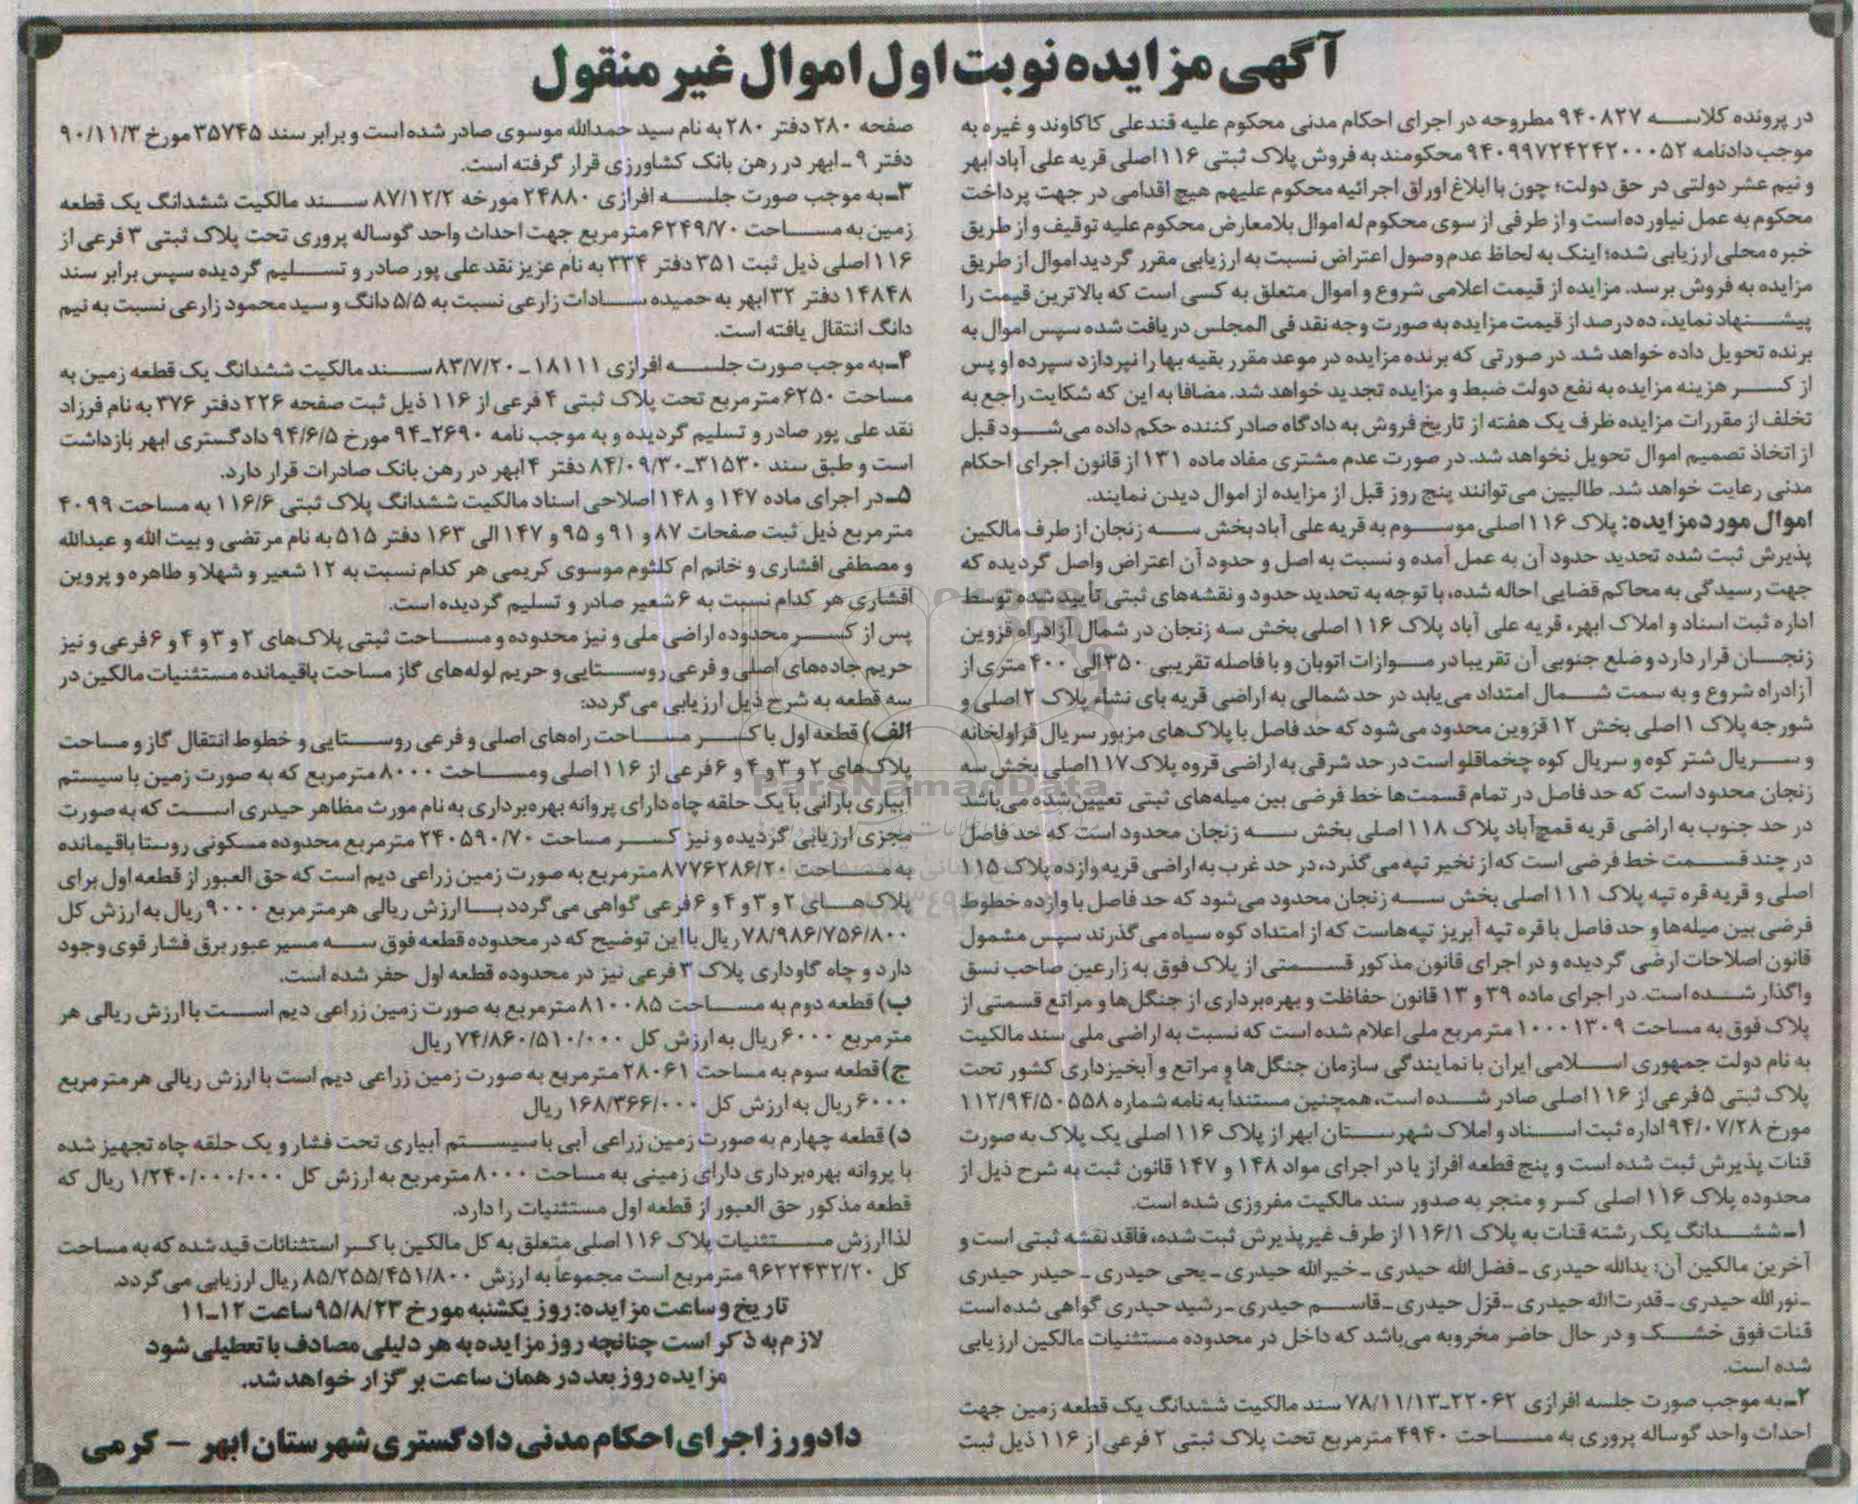 آگهی مزایده نوبت اول اموال غیر منقول
در پرونده کلاسه ۹۴۰۸۲۷ مطروحه در اجرای احکام مدنی محکوم علیه قندعلی کاکاوند و غیره به
موجب دادنامه ۹۴۰۹۹۷۲۴۲۴۲۰۰۰۵۲ محکومند به فروش پلاک ثبتی ۱۱۶ اصلی قریه علی آباد ابهر
و نیم عشر دولتی در حق دولت؛ چون با ابلاغ اوراق اجرائیه محکوم علیهم هیچ اقدامی در جهت پرداخت
محکوم به عمل نیاورده است و از طرفی از سوی محکوم له اموال بلامعارض محکوم علیه توقیف و از طریق
خبره محلی ارزیابی شده؛ اینک به لحاظ عدم وصول اعتراض نسبت به ارزیابی مقرر گردید اموال از طریق
مزایده به فروش برسد. مزایده از قیمت اعلامی شروع و اموال متعلق به کسی است که بالاترین قیمت را
پیشنهاد نماید، ده درصد از قیمت مزایده به صورت وجه نقد فی المجلس دریافت شده سپس اموال به
برنده تحویل داده خواهد شد. در صورتی که برنده مزایده در موعد مقرر بقیه بها را نپردازد سپرده او پس
از کسر هزینه مزایده به نفع دولت ضبط و مزایده تجدید خواهد شد. مضافا به این که شکایت راجع به
تخلف از مقررات مزایده ظرف یک هفته از تاریخ فروش به دادگاه صادر کننده حکم داده می‌شود قبل
از اتخاذ تصمیم اموال تحویل نخواهد شد. در صورت عدم مشتری مفاد ماده ۱۳۱ از قانون اجرای احکام
مدنی رعایت خواهد شد. طالبین می‌توانند پنج روز قبل از مزایده از اموال دیدن نمایند.
اموال مورد مزایده: پلاک ۱۱۶ اصلی موسوم به قریه علی آباد بخش سه زنجان از طرف مالکین
پذیرش ثبت شده تحدید حدود آن به عمل آمده و نسبت به اصل و حدود آن اعتراض واصل گردیده که
جهت رسیدگی به محاکم قضایی احاله شده، با توجه به تحدید حدود و نقشه‌های ثبتی تأیید شده توسط
اداره ثبت اسناد و املاک ابهر، قریه علی آباد پلاک ۱۱۶ اصلی بخش سه زنجان در شمال آزادراه قزوین
زنجان قرار دارد و ضلع جنوبی آن تقریبا در موازات اتوبان و با فاصله تقریبی ۳۵۰ الی ۴۰۰ متری از
آزادراه شروع و به سمت شمال امتداد می‌یابد در حد شمالی به اراضی قریه بای نشاء پلاک ۲ اصلی و
شورجه پلاک ۱ اصلی بخش ۱۲ قزوین محدود می‌شود که حد فاصل با پلاک‌های مزبور سریال قراولخانه
و سریال شتر کوه و سریال کوه چخماقلو است در حد شرقی به اراضی قروه پلاک ۱۱۷ اصلی بخش سه
زنجان محدود است که حد فاصل در تمام قسمت‌ها خط فرضی بین میله‌های ثبتی تعیین شده می‌باشد
در حد جنوب به اراضی قریه قمچ‌آباد پلاک ۱۱۸ اصلی بخش سه زنجان محدود است که حد فاصل
در چند قسمت خط فرضی است که از نخیر تپه می‌گذرد، در حد غرب به اراضی قریه وازده پلاک ۱۱۵
اصلی و قریه قره تپه پلاک ۱۱۱ اصلی بخش سه زنجان محدود می‌شود که حد فاصل با وازده خطوط
فرضی بین میله‌ها و حد فاصل با قره تپه آبریز تپه‌هاست که از امتداد کوه سیاه می‌گذرند سپس مشمول
قانون اصلاحات ارضی گردیده و در اجرای قانون مذکور قسمتی از پلاک فوق به زارعین صاحب نسق
واگذار شده است. در اجرای ماده ۳۹ و ۱۳ قانون حفاظت و بهره‌برداری از جنگل‌ها و مراتع قسمتی از
پلاک فوق به مساحت ۱۰۰۰۱۳۰۹ مترمربع ملی اعلام شده است که نسبت به اراضی ملی سند مالکیت
به نام دولت جمهوری اسلامی ایران با نمایندگی سازمان جنگل‌ها و مراتع و آبخیزداری کشور تحت
پلاک ثبتی ۵ فرعی از ۱۱۶ اصلی صادر شده است، همچنین مستندا به نامه شماره ۱۱۲/۹۴/۵۰۵۵۸
مورخ ۹۴/۰۷/۲۸ اداره ثبت اسناد و املاک شهرستان ابهر از پلاک ۱۱۶ اصلی یک پلاک به صورت
قنات پذیرش ثبت شده است و پنج قطعه افراز یا در اجرای مواد ۱۴۸ و ۱۴۷ قانون ثبت به شرح ذیل از
محدوده پلاک ۱۱۶ اصلی کسر و منجر به صدور سند مالکیت مفروزی شده است.
۱ـ ششدانگ یک رشته قنات به پلاک ۱۱۶/۱ از طرف غیرپذیرش ثبت شده، فاقد نقشه ثبتی است و
آخرین مالکین آن: یدالله حیدری ـ فضل‌الله حیدری ـ خیرالله حیدری ـ یحی حیدری ـ حیدر حیدری
ـ نورالله حیدری ـ قدرت‌الله حیدری ـ قزل حیدری ـ قاسم حیدری ـ رشید حیدری گواهی شده است
قنات فوق خشک و در حال حاضر مخروبه می‌باشد که داخل در محدوده مستثنیات مالکین ارزیابی
شده است.
۲ـ به موجب صورت جلسه افرازی ۲۲۰۶۲ـ۷۸/۱۱/۱۳ سند مالکیت ششدانگ یک قطعه زمین جهت
احداث واحد گوساله پروری به مساحت ۴۹۴۰ مترمربع تحت پلاک ثبتی ۲ فرعی از ۱۱۶ ذیل ثبت
صفحه ۲۸۰ دفتر ۲۸۰ به نام سید حمدالله موسوی صادر شده است و برابر سند ۳۵۷۴۵ مورخ ۹۰/۱۱/۳
دفتر ۹ ـ ابهر در رهن بانک کشاورزی قرار گرفته است.
۳ـ به موجب صورت جلسه افرازی ۲۴۸۸۰ مورخه ۸۷/۱۲/۲ سند مالکیت ششدانگ یک قطعه
زمین به مساحت ۶۲۴۹/۷۰ مترمربع جهت احداث واحد گوساله پروری تحت پلاک ثبتی ۳ فرعی از
۱۱۶ اصلی ذیل ثبت ۳۵۱ دفتر ۳۳۴ به نام عزیز نقد علی پور صادر و تسلیم گردیده سپس برابر سند
۱۴۸۴۸ دفتر ۳۲ ابهر به حمیده سادات زارعی نسبت به ۵/۵ دانگ و سید محمود زارعی نسبت به نیم
دانگ انتقال یافته است.
۴ـ به موجب صورت جلسه افرازی ۱۸۱۱۱ ـ ۸۳/۷/۲۰ سند مالکیت ششدانگ یک قطعه زمین به
مساحت ۶۲۵۰ مترمربع تحت پلاک ثبتی ۴ فرعی از ۱۱۶ ذیل ثبت صفحه ۲۲۶ دفتر ۳۷۶ به نام فرزاد
نقد علی پور صادر و تسلیم گردیده و به موجب نامه ۲۶۹۰ـ۹۴ مورخ ۹۴/۶/۵ دادگستری ابهر بازداشت
است و طبق سند ۳۱۵۳۰ـ۸۴/۰۹/۳۰ دفتر ۴ ابهر در رهن بانک صادرات قرار دارد.
۵ـ در اجرای ماده ۱۴۷ و ۱۴۸ اصلاحی اسناد مالکیت ششدانگ پلاک ثبتی ۱۱۶/۶ به مساحت ۴۰۹۹
مترمربع ذیل ثبت صفحات ۸۷ و ۹۱ و ۹۵ و ۱۴۷ الی ۱۶۳ دفتر ۵۱۵ به نام مرتضی و بیت الله و عبدالله
و مصطفی افشاری و خانم ام کلثوم موسوی کریمی هر کدام نسبت به ۱۲ شعیر و شهلا و طاهره و پروین
افشاری هر کدام نسبت به ۶ شعیر صادر و تسلیم گردیده است.
پس از کسر محدوده اراضی ملی و نیز محدوده و مساحت ثبتی پلاک‌های ۲ و ۳ و ۴ و ۶ فرعی و نیز
حریم جاده‌های اصلی و فرعی روستایی و حریم لوله‌های گاز مساحت باقیمانده مستثنیات مالکین در
سه قطعه به شرح ذیل ارزیابی می‌گردد:
الف) قطعه اول با کسر مساحت راه‌های اصلی و فرعی روستایی و خطوط انتقال گاز و مساحت
پلاک‌های ۲ و ۳ و ۴ و ۶ فرعی از ۱۱۶ اصلی و مساحت ۸۰۰۰ مترمربع که به صورت زمین با سیستم
آبیاری بارانی با یک حلقه چاه دارای پروانه بهره‌برداری به نام مورث مظاهر حیدری است که به صورت
مجزی ارزیابی گردیده و نیز کسر مساحت ۲۴۰۵۹۰/۷۰ مترمربع محدوده مسکونی روستا باقیمانده
به مساحت ۸۷۷۶۲۸۶/۲۰ مترمربع به صورت زمین زراعی دیم است که حق العبور از قطعه اول برای
پلاک‌های ۲ و ۳ و ۴ و ۶ فرعی گواهی می‌گردد با ارزش ریالی هر مترمربع ۹۰۰۰ ریال به ارزش کل
۷۸/۹۸۶/۷۵۶/۸۰۰ ریال با این توضیح که در محدوده قطعه فوق سه مسیر عبور برق فشار قوی وجود
دارد و چاه گاوداری پلاک ۳ فرعی نیز در محدوده قطعه اول حفر شده است.
ب) قطعه دوم به مساحت ۸۱۰۰۸۵ مترمربع به صورت زمین زراعی دیم است با ارزش ریالی هر
مترمربع ۶۰۰۰ ریال به ارزش کل ۷۴/۸۶۰/۵۱۰/۰۰۰ ریال
ج) قطعه سوم به مساحت ۲۸۰۶۱ مترمربع به صورت زمین زراعی دیم است با ارزش ریالی هر مترمربع
۶۰۰۰ ریال به ارزش کل ۱۶۸/۳۶۶/۰۰۰ ریال
د) قطعه چهارم به صورت زمین زراعی آبی با سیستم آبیاری تحت فشار و یک حلقه چاه تجهیز شده
با پروانه بهره‌برداری دارای زمینی به مساحت ۸۰۰۰ مترمربع به ارزش کل ۱/۲۴۰/۰۰۰/۰۰۰ ریال که
قطعه مذکور حق العبور از قطعه اول مستثنیات را دارد.
لذا ارزش مستثنیات پلاک ۱۱۶ اصلی متعلق به کل مالکین با کسر استثنائات قید شده که به مساحت
کل ۹۶۲۲۴۳۲/۲۰ مترمربع است مجموعا به ارزش ۸۵/۲۵۵/۴۵۱/۸۰۰ ریال ارزیابی می‌گردد.
تاریخ و ساعت مزایده: روز یکشنبه مورخ ۹۵/۸/۲۳ ساعت ۱۲ـ۱۱
لازم به ذکر است چنانچه روز مزایده به هر دلیلی مصادف با تعطیلی شود
مزایده روز بعد در همان ساعت برگزار خواهد شد.
دادورز اجرای احکام مدنی دادگستری شهرستان ابهر – کرمی
ParsNamadData